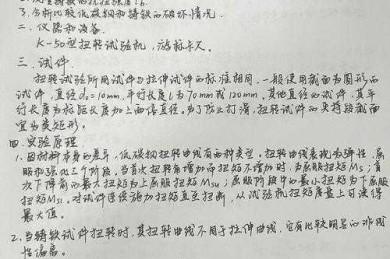 3. 分析比较低碳钢和铸铁的破坏情况
二. 仪器和设备
K-50型扭转试验机, 游标卡尺。
三. 试件
扭转试验所用试件与拉伸试件的标准相同, 一般使用截面为圆形的
试件, 直径d₀=10mm, 平行长度l为70mm或120mm, 其他直径的试件, 其平
行长度为标距长度加上两倍直径。为了防止打滑, 扭转试样的夹持段截面
宜为类矩形。
四. 实验原理
1. 因材料本身的差异, 低碳钢扭转曲线有两种类型, 扭转曲线表现为弹性、屈
服和强化三个阶段, 当首次扭角增加而扭矩不增加时, 为屈服扭矩Ms; 首
次下降前的最大扭矩为上屈服扭矩Msu; 屈服阶段中的最小扭矩为下屈服
扭矩MsL, 对试件连续施加扭矩直至扭断, 从试验机扭矩度盘上可读得
最大值。
2. 当铸铁试件扭转时, 其扭转曲线不同于拉伸曲线, 它有比较明显的非线
性偏离。